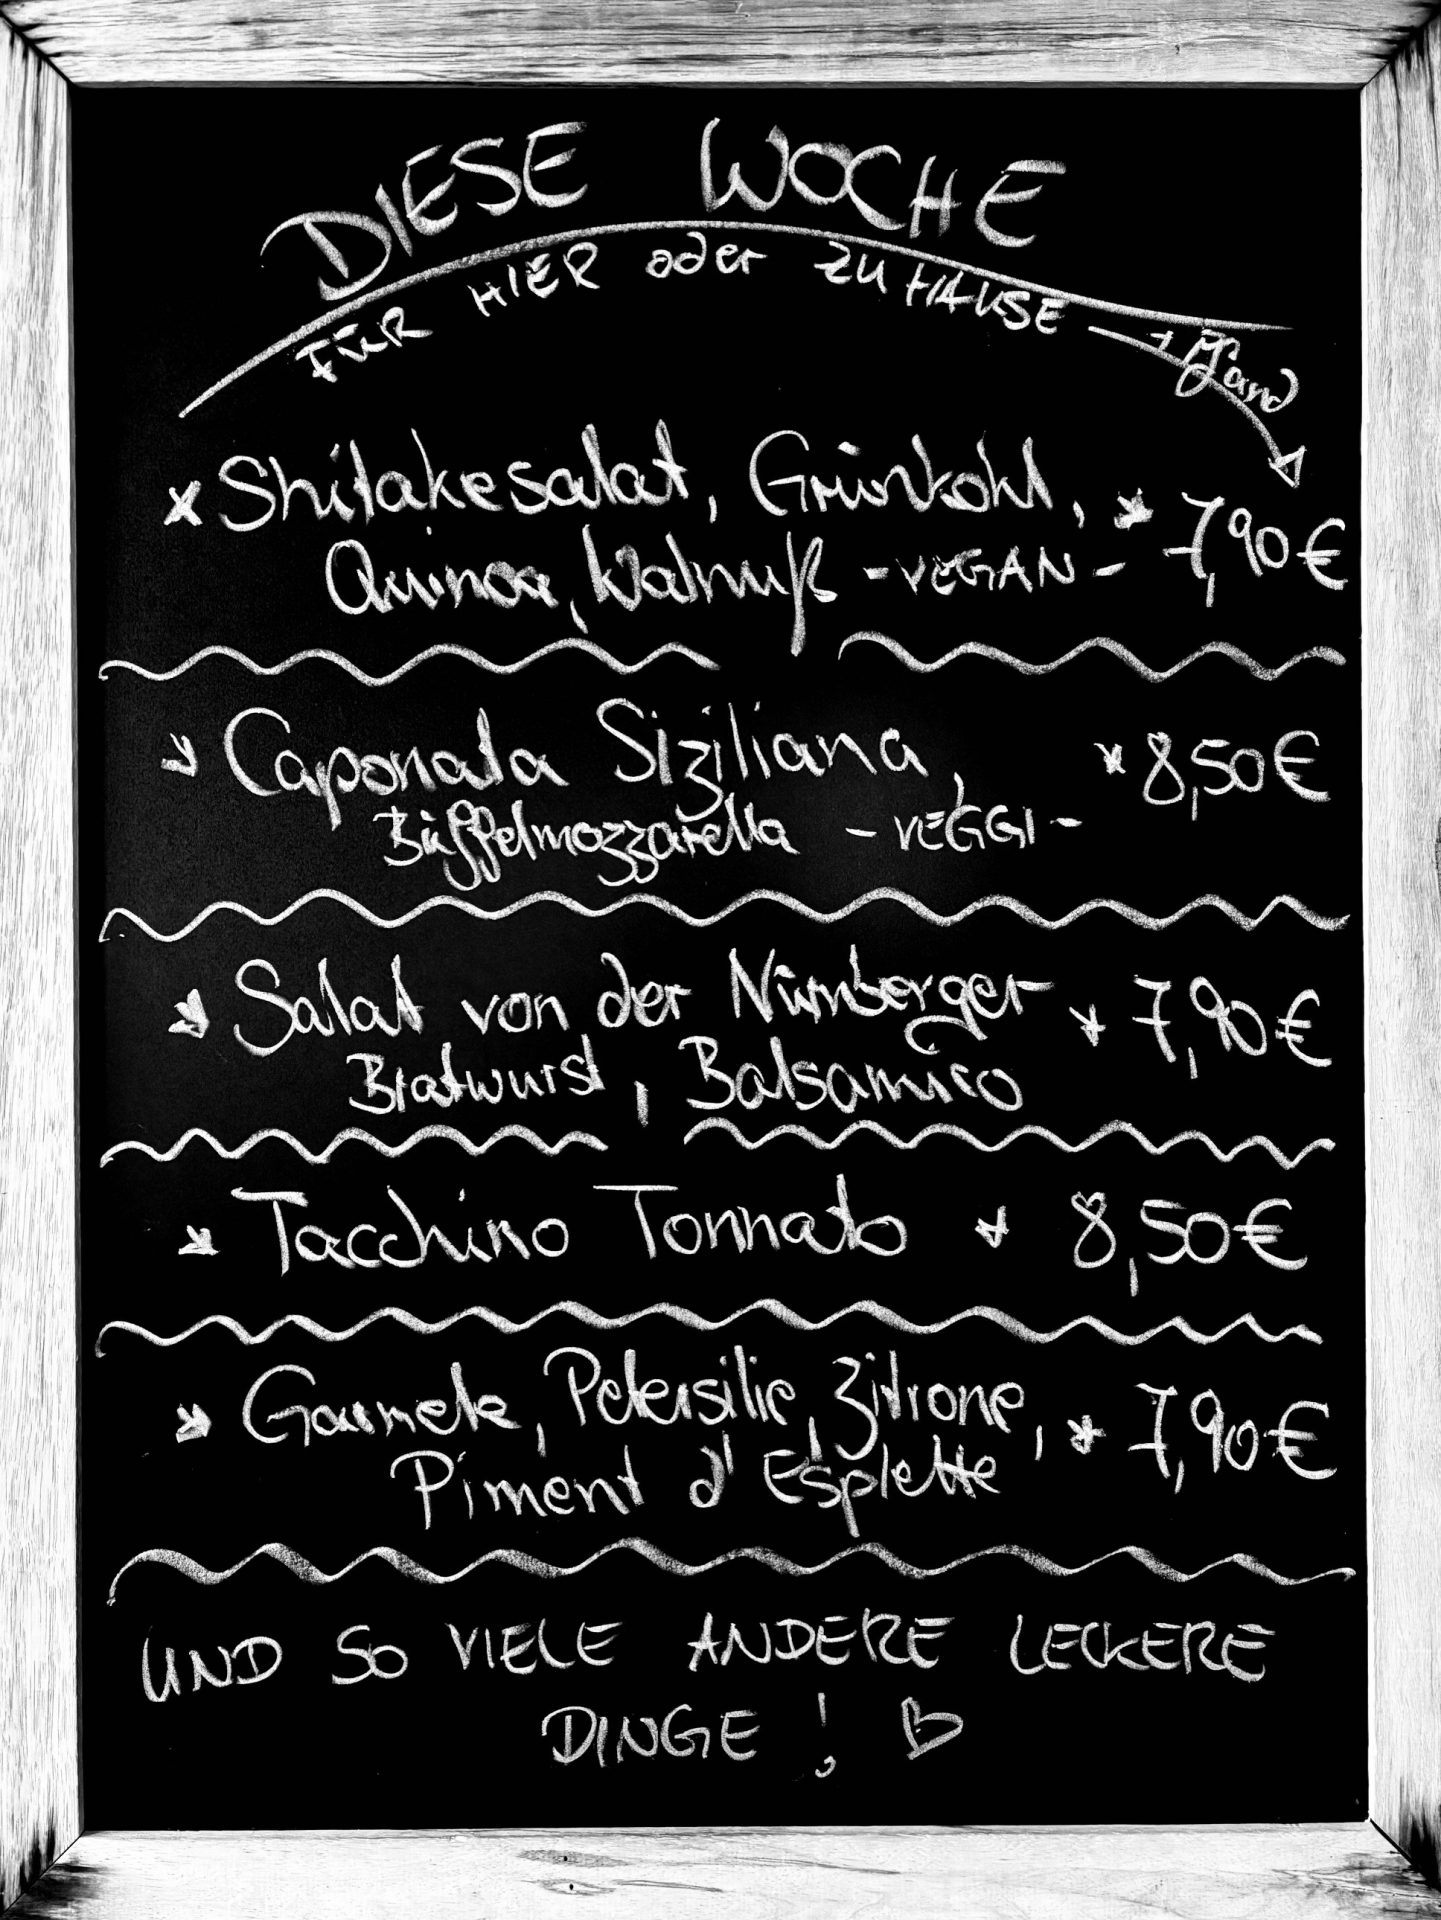 DIESE WOCHE
FÜR HIER oder ZUHAUSE → + Pfand
Shitakesalat, Grünkohl, 7,90€
Quinoa, Walnuß - VEGAN -
Caponata Siziliana, 8,50€
Büffelmozzarella - VEGGI -
Salat von der Nürnberger 7,90€
Bratwurst, Balsamico
Tacchino Tonnato 8,50€
Garnele, Petersilie, Zitrone, 7,90€
Piment d'Esplette
UND SO VIELE ANDERE LECKERE
DINGE!